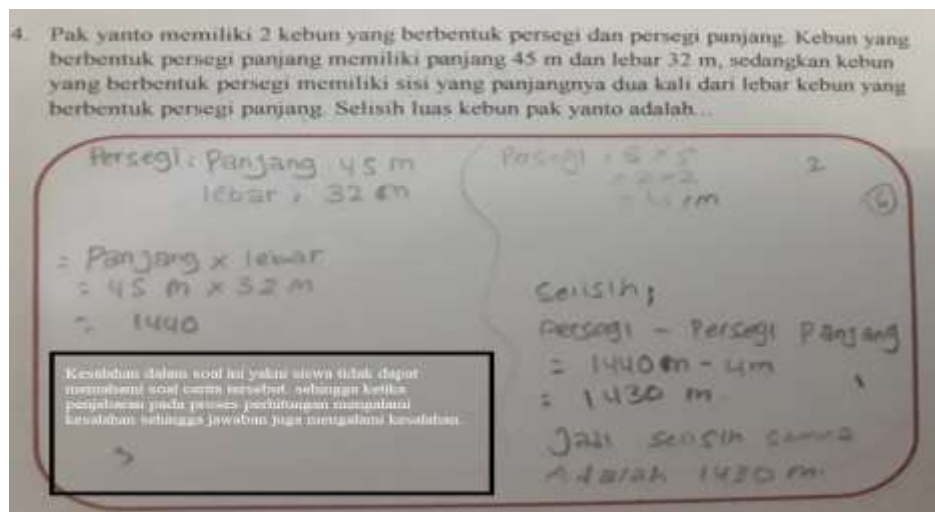 4. Pak yanto memiliki 2 kebun yang berbentuk persegi dan persegi panjang. Kebun yang
berbentuk persegi panjang memiliki panjang 45 m dan lebar 32 m, sedangkan kebun
yang berbentuk persegi memiliki sisi yang panjangnya dua kali dari lebar kebun yang
berbentuk persegi panjang. Selisih luas kebun pak yanto adalah...
Persegi : Panjang 45 m
lebar , 32 m
= Panjang x lebar
= 45 m x 32 m
= 1440
Kesalahan dalam soal ini yakni siswa tidak dapat
memahami soal cerita tersebut, sehingga ketika
penjabaran pada proses perhitungan mengalami
kesalahan sehingga jawaban juga mengalami kesalahan.
3
Persegi = S x S
= 2 x 2
= cm
2
6
Selisih ;
Persegi - Persegi Panjang
= 1440 m - 4m
= 1430 m
Jadi selisih
Adalah 1430 m.